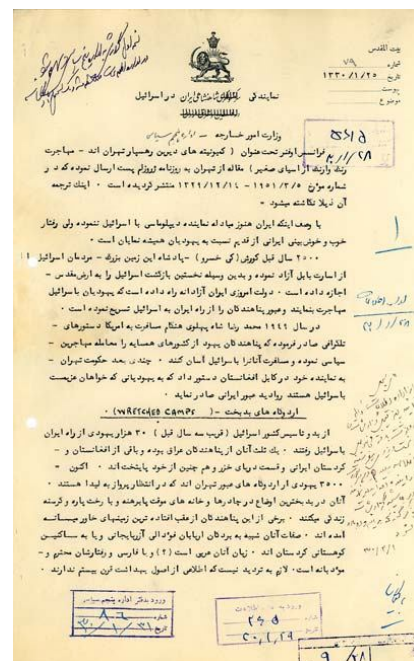 بیت المقدس
شماره ۷۹
تاریخ ۱۳۳۰/۱/۲۵
پیوست
موضوع
نمایندگی شاهنشاهی ایران در اسرائیل
وزارت امور خارجه - اداره پنجم سیاسی
فرانسس اوفنر تحت عنوان (کمونیته های دیرین رهسپار تهران اند - مهاجرت
زند وارند از آسیای صغیر) مقاله از تهران به روزنامه ژروزالم پست ارسال نموده که در
شماره مورخ ۱۹۵۱/۳/۵ - ۱۳۲۹/۱۲/۱۴ منتشر گردیده است ۰ اینک ترجمه
آن ذیلا نگاشته میشود -
با وصف اینکه ایران هنوز مبادله نماینده دیپلوماسی با اسرائیل ننموده ولی رفتار
خوب و خوش بینی ایرانی از قدیم نسبت به یهودیان همیشه نمایان است ۰
۲۵۰۰ سال قبل کورش (کی خسرو) - پادشاه این زمین بزرگ - مردمان اسرائیل را
از اسارت بابل آزاد نموده و بدین وسیله نخستین بازگشت اسرائیل را به ارض مقدس -
اجازه داده است ۰ دولت امروزی ایران آزادانه راه داده است که یهودیان باسرائیل
مهاجرت بنمایند و عبور پناهندگان را از راه ایران به اسرائیل تسریع نموده است ۰
در سال ۱۹۴۹ محمد رضا شاه پهلوی هنگام مسافرت به امریکا دستورهای -
تلگرافی صادر فرموده که پناهندگان یهود از کشورهای همسایه را معامله مهاجرین -
سیاسی نموده و مسافرت آنانرا باسرائیل آسان کنند ۰ چندی بعد حکومت تهران -
به نماینده خود در کابل افغانستان دستور داد که به یهودیانی که خواهان عزیمت
باسرائیل هستند روادید عبور ایرانی صادر نماید ۰
اردوگاه های بدبخت - (WRETCHED CAMPS)
از بدو تاسیس کشور اسرائیل (قریب سه سال قبل) ۳۰ هزار یهودی از راه ایران
باسرائیل رفتند ۰ یک ثلث آنان از پناهندگان عراق بوده و باقی از افغانستان و -
کردستان ایرانی و قسمت دریای خزر و هم چنین از خود پایتخت اند ۰ اکنون -
۲۵۰۰ یهودی از اردوگاه های عبور تهران اند که در انتظار پرواز به لیدا هستند ۰
آنان در بدترین اوضاع در چادرها و خانه های موقت پابرهنه و با رخت پاره و گرسنه
زندگی میکنند ۰ برخی از این پناهندگان از عقب افتاده ترین زمینهای خاور میانه
آمده اند ۰ صفات آنان شبیه به بردگان اربابان فئودالی آذربایجانی و یا به ساکنین
کوهستانی کردستان اند ۰ زبان آنان عربی است (؟) و با فارسی و رفتارشان محترم و -
مؤدبانه است ۰ لازم به تردید نیست که اطلاعی از اصول بهداشت قرن بیستم ندارند ۰
ورود بدفتر اداره پنجم سیاسی
شماره ۸۶
تاریخ ۳۰/۱/۳۱
شماره ۲۶۵
تاریخ ۳۰/۱/۲۹